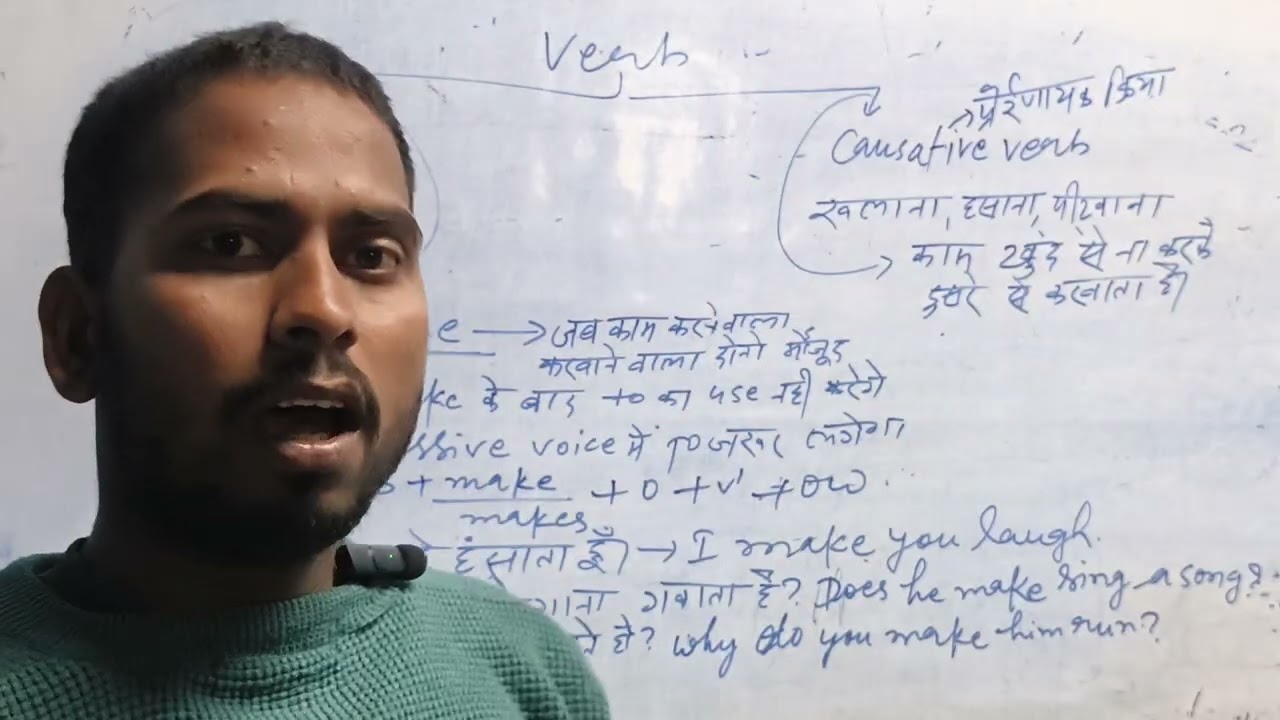 Verb
प्रेरणायक क्रिया
Causative verb
खलाना, हसाना, पीटवाना
काम खुद से ना करके
दुसरे से करवाता है।
e → जब काम करने वाला
करवाने वाला दोनो मौजूद
ke के बाद to का use नही करेगे
ssive voice में To जरूर लगेगा
S + make + O + V¹ + OW.
makes
हंसाता हूँ। → I make you laugh.
गाना गवाता है? Does he make sing a song?
हो? Why do you make him run?